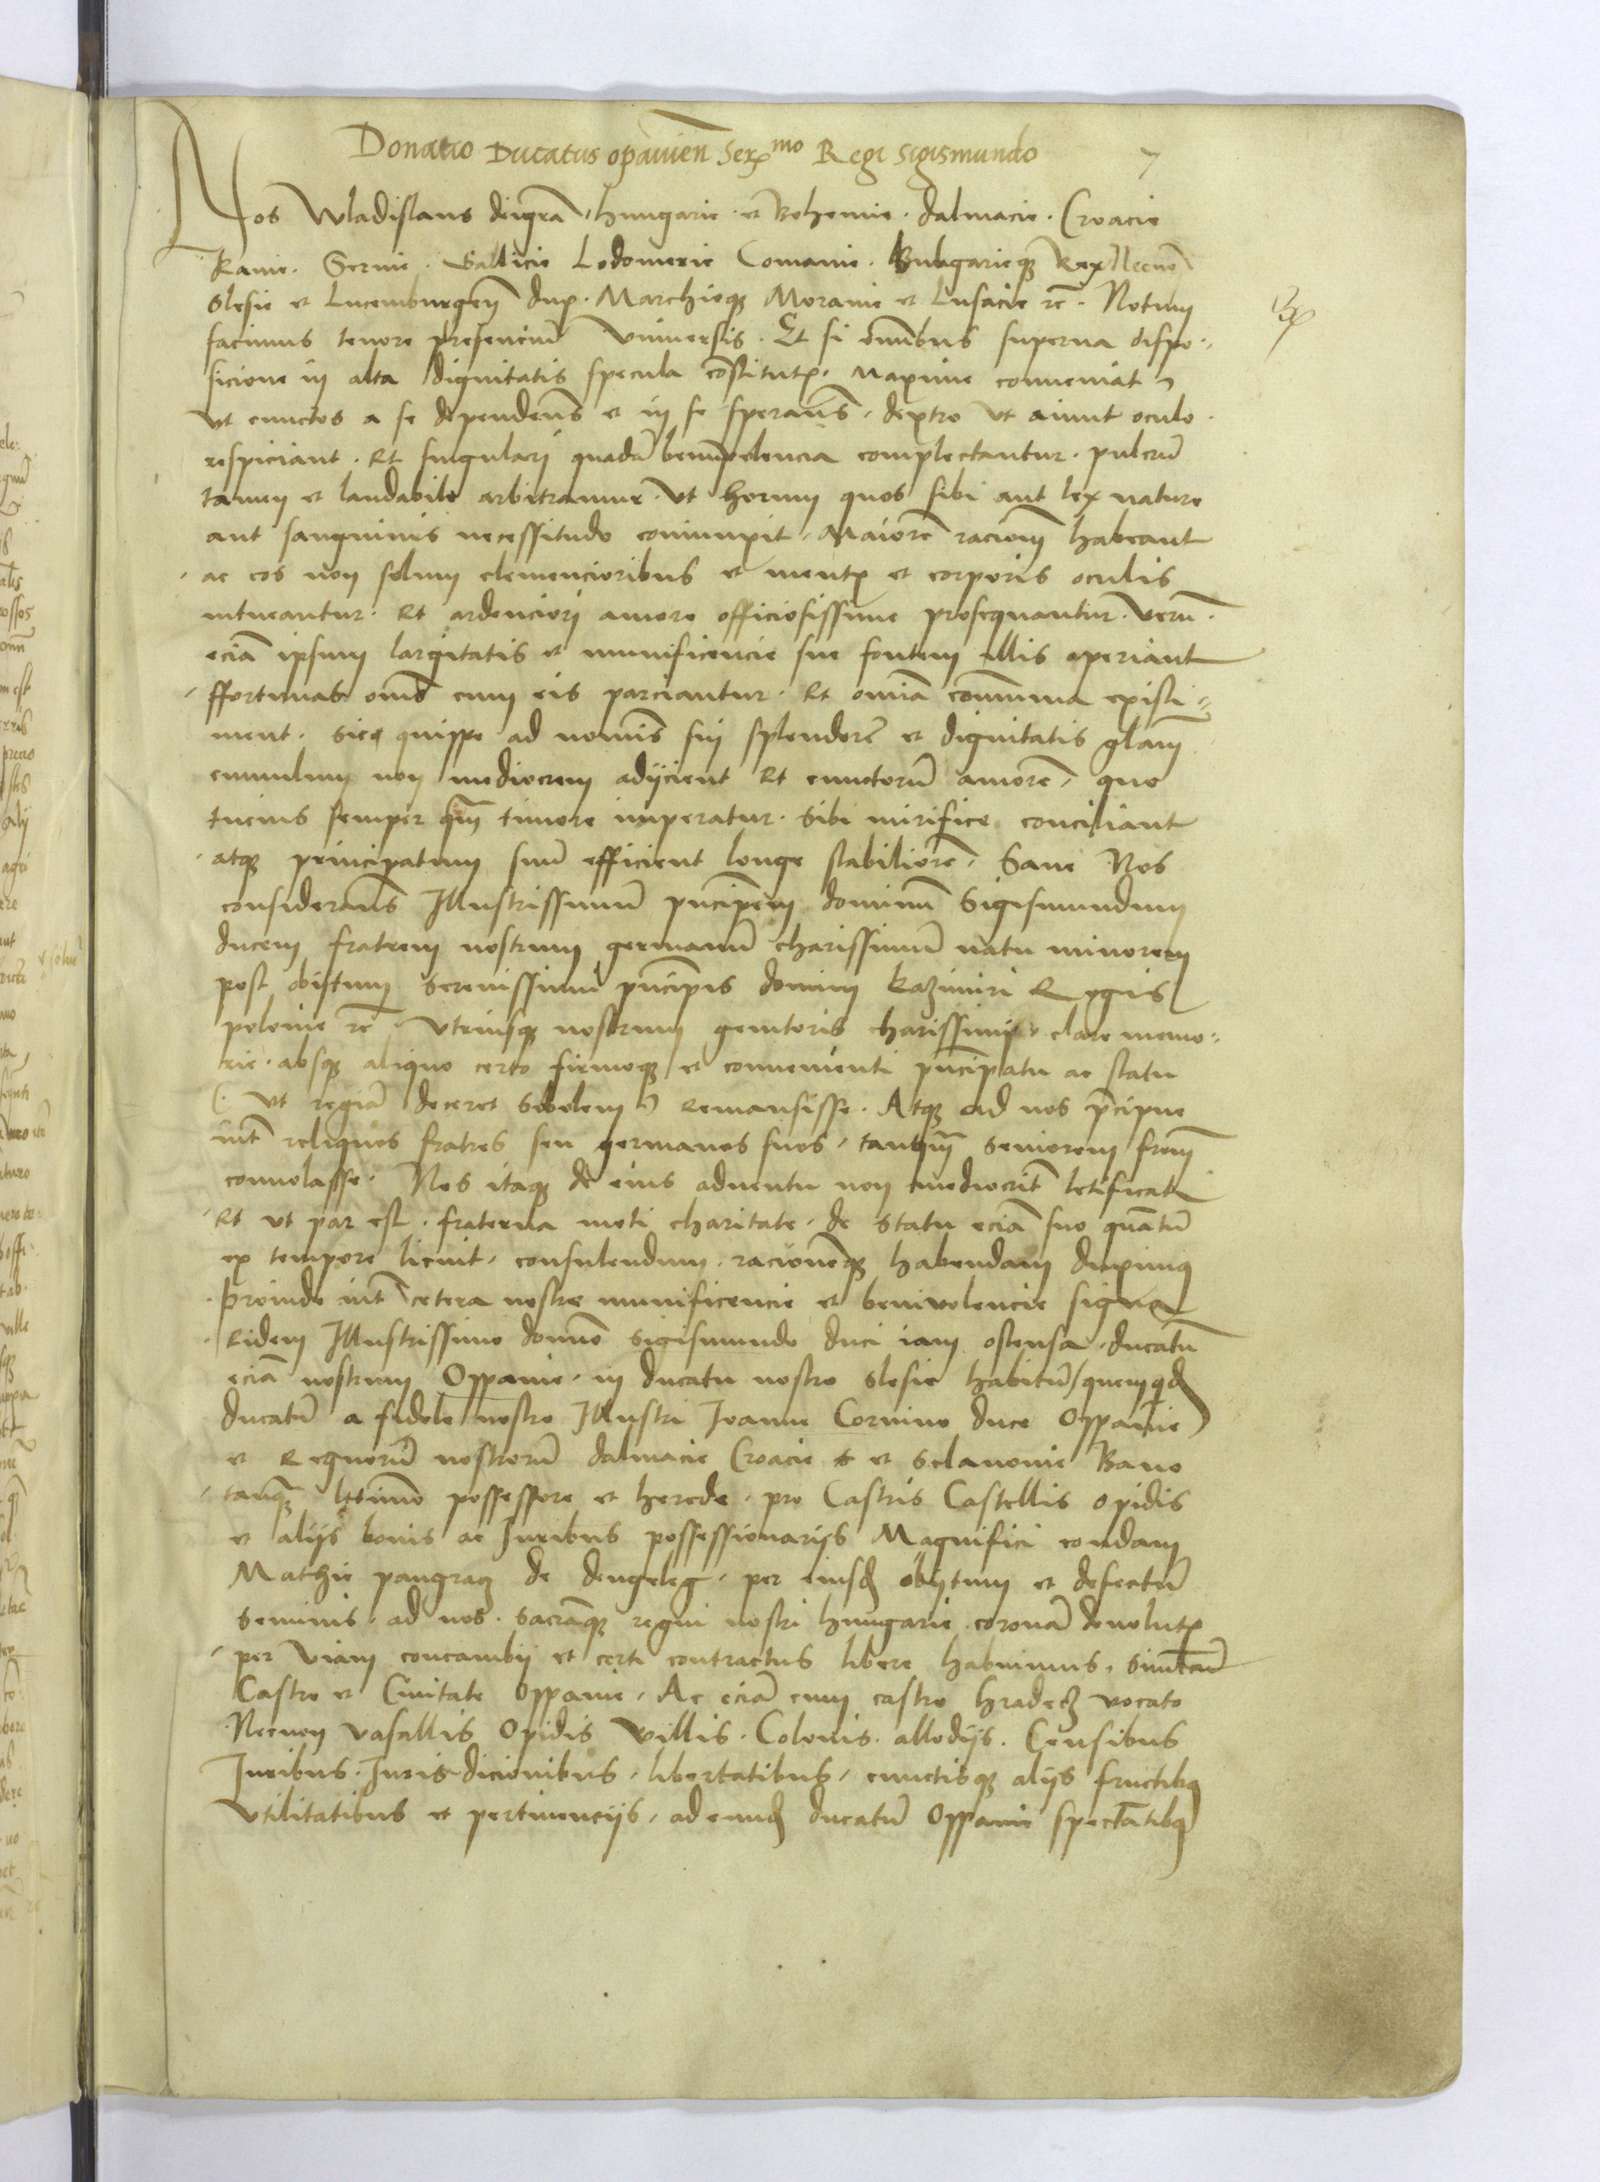 Donatio Ducatus opavien̄ Serᵐᵒ Regi Sigismundo
7
Nos Wladislaus dei gr̄a Hungarie et Bohemie Dalmacie Croacie
Rame Seruie Gallicie Lodomerie Comanie Bulgarieq; Rex Necno
Slesie et Lucemburgen̄ dux Marchioq; Morauie et Lusacie rc̄ Notum
facimus tenore presenciū Vniuersis Et si om̄ibus superna dispo
sicione in alta dignitatis specula constitut maxime conueniat
vt cunctos a se dependen̄s et in se speran̄s dextro vt aiunt oculo
respiciant et singulari quadā beniuolencia complectantur pulcrū
tamen et laudabile arbitramur vt horum quos sibi aut lex nature
aut sanguinis necessitudo coniunxit Maiorē racionem habeant
ac eos non solum clemencioribus et ment et corporis oculis
intueantur et ardenciori amore officiosissime prosequantur verū
eciā ipsum largitatis et munificencie sue fontem illis aperiant
ffortunas om̄s cum eis parciantur et omīa com̄unia existi
ment sicq quippe ad nomīs sui splendorē et dignitatis gl̄am
cumulum non mediocrem adijcient et cunctorū amorē quo
tucius semper qm̄ timore imperatur sibi mirifice conciliant
atq; principatum suū efficient longe stabiliorē Sane Nos
consideran̄s Illustrissimū prīcipem dominū Sigismundum
ducem fratrem nostrum germanū charissimū natu minorem
post obitum serenissimi prīcipis domini Kazimiri Regis
polonie rc̄ vtriusq; nostrum genitoris charissimi clare memo
rie absq; aliquo certo firmoq; et conuenienti prīcipatu ac statu
(: vt regiā deceret sobolem :) remansisse Atq; ad nos p̄cipue
int̄ reliquos fratres seu germanos suos tanq̄m seniorem fr̄em
conuolasse Nos itaq; de eius aduentu non mediocrit̄ letificati
et vt par est fraterna moti charitate de statu eciā suo quantū
ex tempore licuit consulendum racionēq; habendam duximus
proinde int̄ cetera nostre munificencie et beniuolencie signa
eidem Illustrissimo domīo Sigismundo duci iam ostensa ducatū
eciā nostrum Oppauie in ducatu nostro Slesie habitū quemquid
ducatū a fidele nostro Illustri Joanne Coruino duce Oppauie
et Regnorū nostrorū Dalmacie Croacie et Sclauonie Bano
tanq; l̄timo possessore et herede pro Castris Castellis opidis
et alijs bonis ac Iuribus possessionarijs Magnifici condam
Mathie pangracz de dengeleg per eiusd obitum et defectū
seminis ad nos sacrāq; regni nostri hungarie coronā deuolut
per viam concambij et certi contractus libere habuimus simulcū
Castro et Ciuitate Oppauie Ac eciā cum castro hradecz vocato
Necnon vasallis Opidis villis Colonis allodijs Censibus
Iuribus Iurisdicionibus libertatibus cunctisq; alijs fructibq
vtilitatibus et pertinencijs ad eund ducatū Oppauie spectātibq